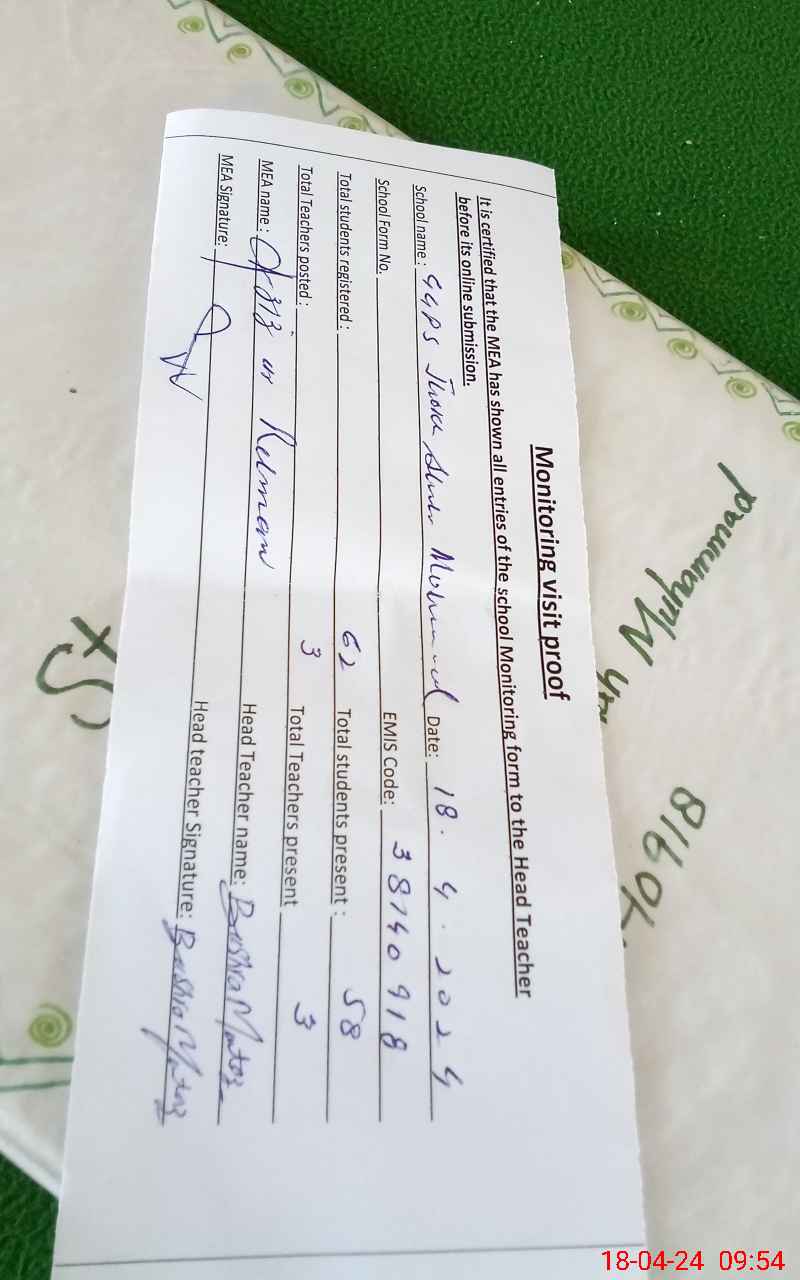 Monitoring visit proof
It is certified that the MEA has shown all entries of the school Monitoring form to the Head Teacher
before its online submission.
School name: GGPS Date: 18.4.2024
School Form No. EMIS Code: 38740918
Total students registered: 62 Total students present: 58
Total Teachers posted: 3 Total Teachers present 3
MEA name: ur Rehman Head Teacher name: Bushra Mumtaz
MEA Signature: Head teacher Signature: Bushra Mumtaz
Muhammad
0918
18-04-24 09:54